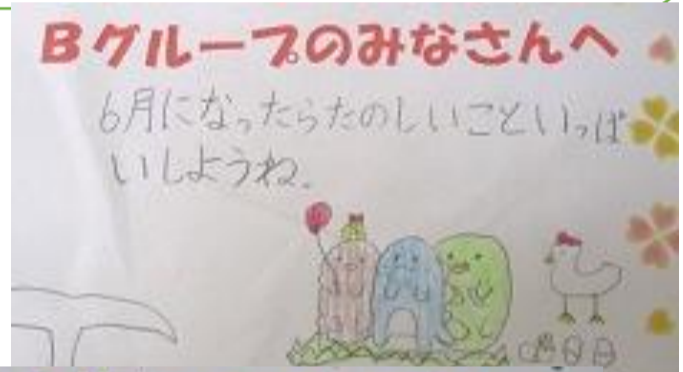 Bグループのみなさんへ
6月になったらたのしいこといっぱ
いしようね。